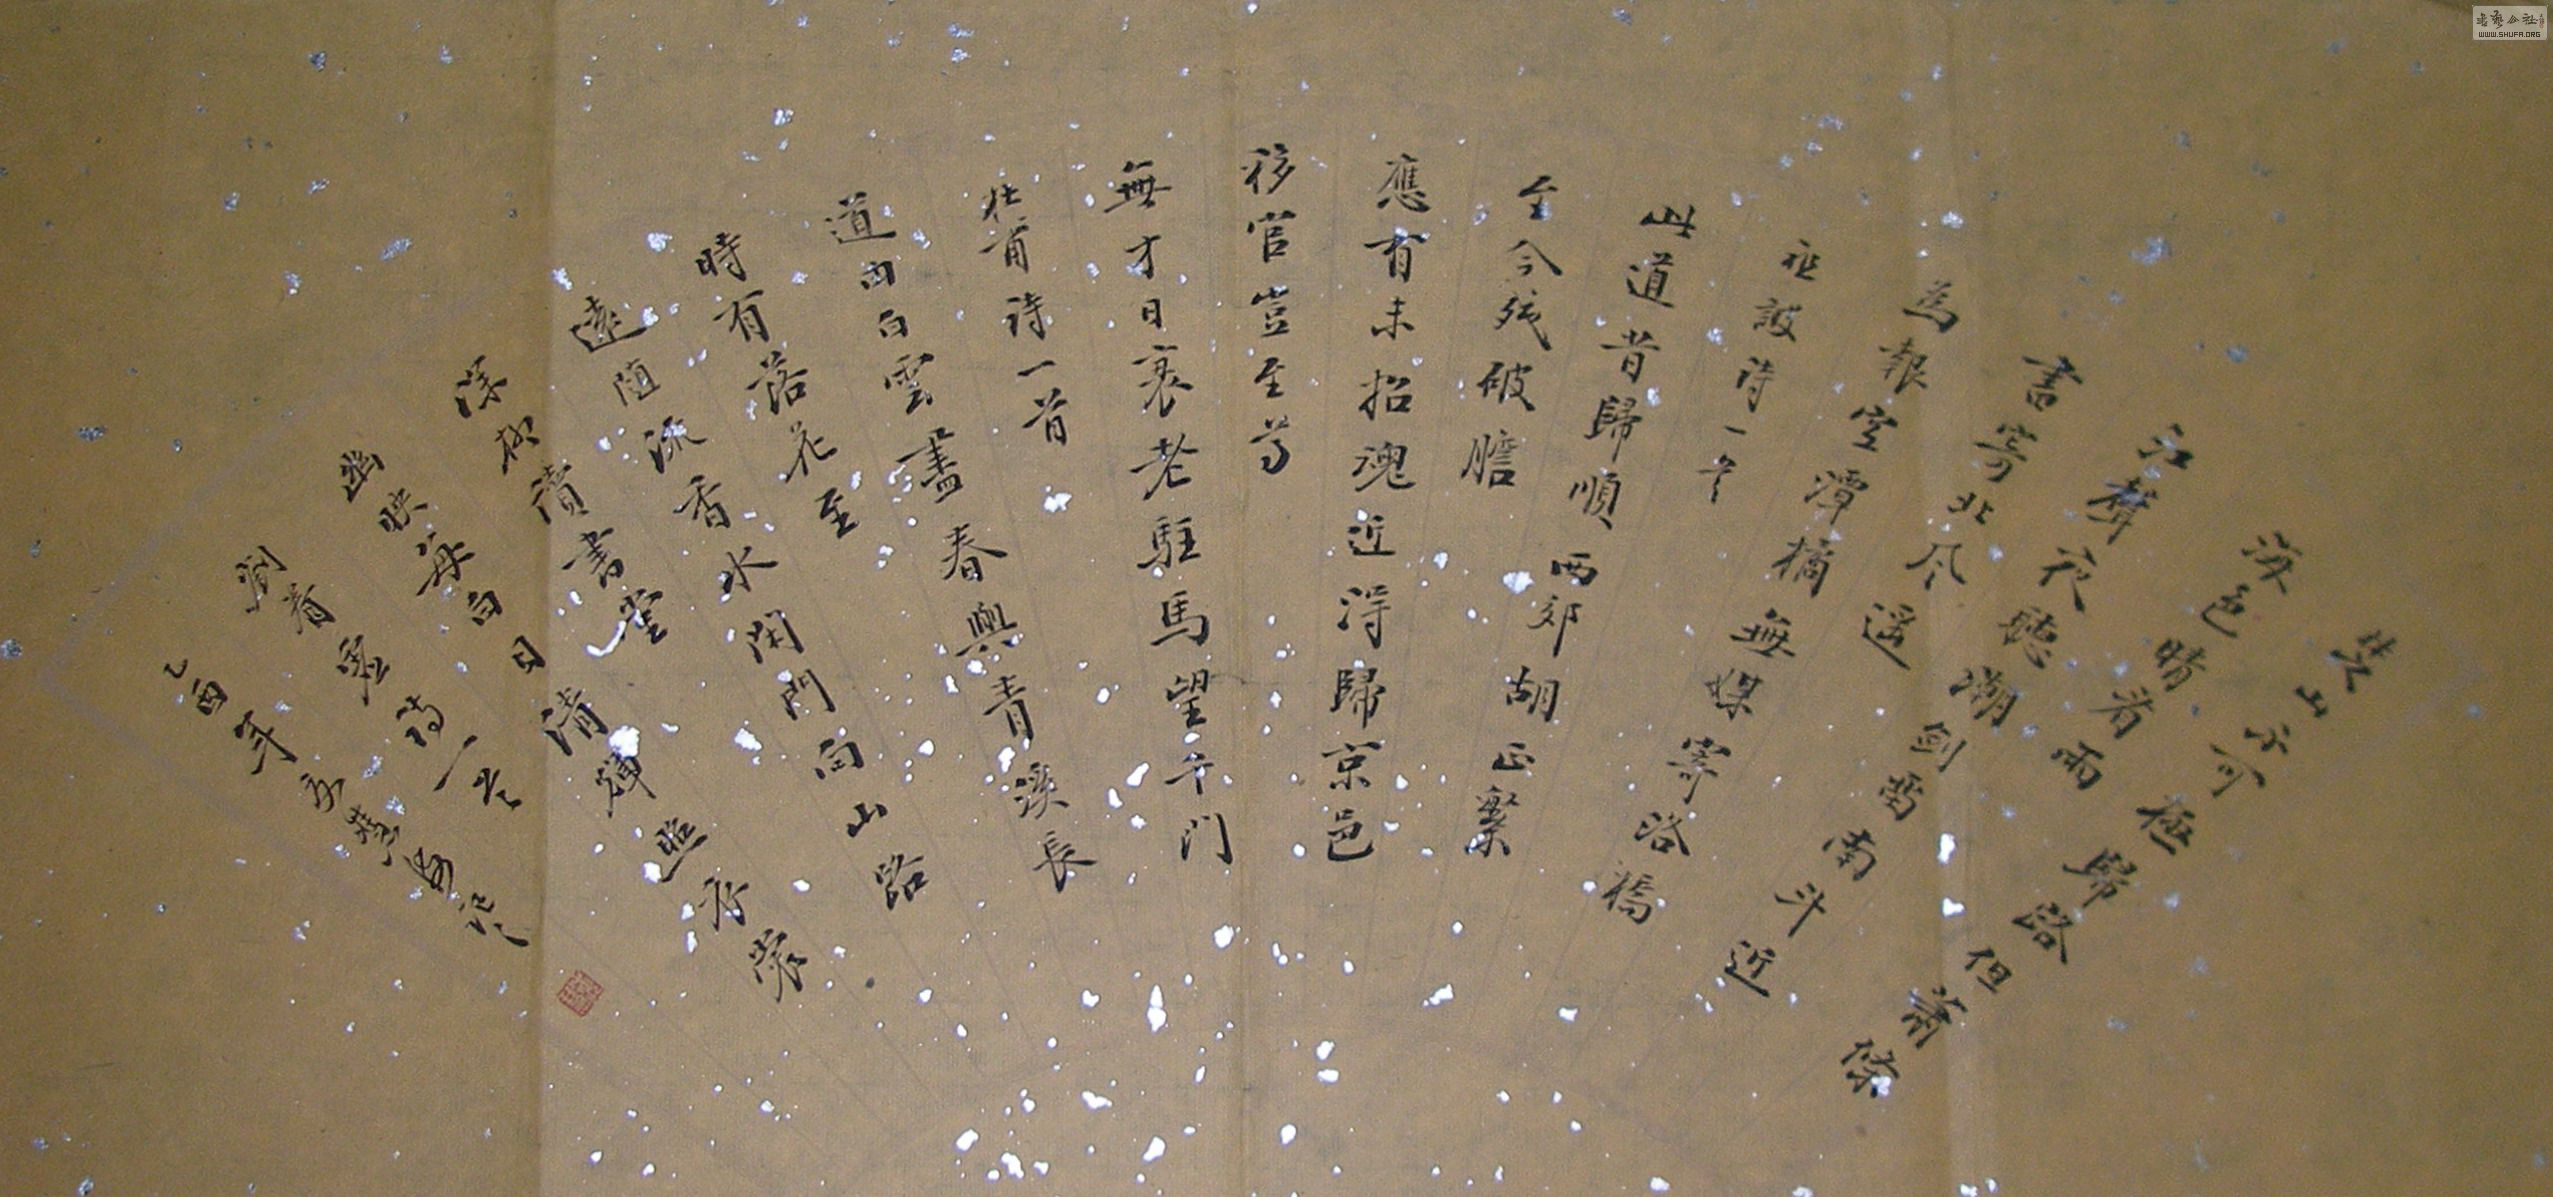 楚山不可極歸路但蕭條
海色晴看雨
江聲夜聽潮剑留南斗近
書寄北风遥
為報空潭橘無媒寄洛橋
祖詠詩一首
此道昔歸順西郊胡正繁
至今残破膽
應有未招魂近得歸京邑
移官豈至尊
無才日衰老駐馬望千門
杜甫詩一首
道由白雲盡春與青溪長
時有落花至
遠随流香水閑門向山路
深柳讀書堂
幽映每白日清輝照衣裳
劉昚虛詩一首
乙酉年
書藝公社
WWW.SHUFA.ORG